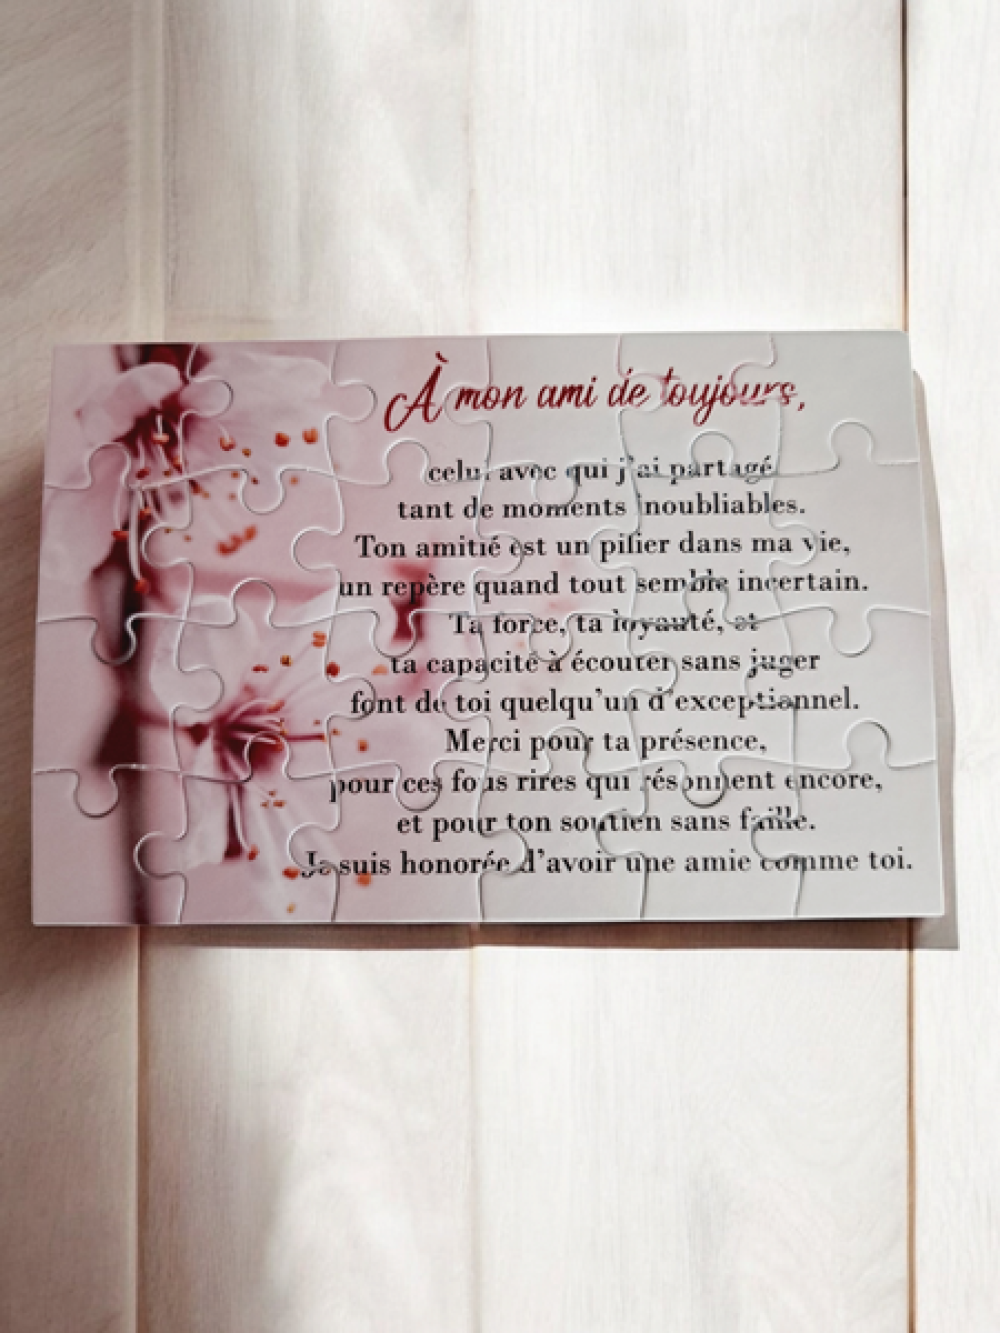 À mon ami de toujours,
celui avec qui j'ai partagé
tant de moments inoubliables.
Ton amitié est un pilier dans ma vie,
un repère quand tout semble incertain.
Ta force, ta loyauté, et
ta capacité à écouter sans juger
font de toi quelqu'un d'exceptionnel.
Merci pour ta présence,
pour ces fous rires qui résonnent encore,
et pour ton soutien sans faille.
Je suis honorée d'avoir une amie comme toi.